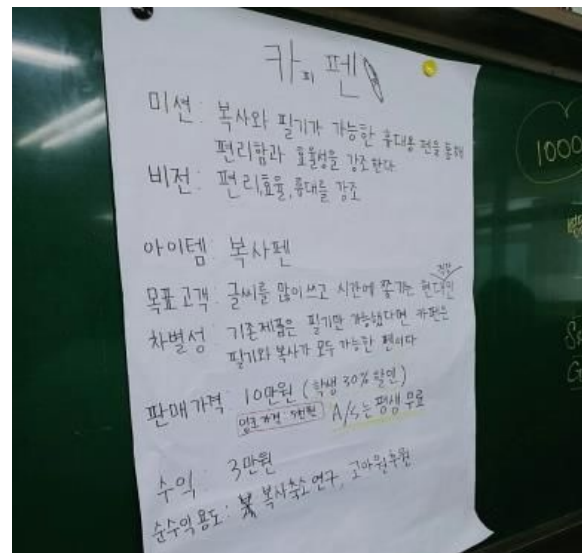 카피펜
미션: 복사와 필기가 가능한 휴대용 펜을 통해
편리함과 효율성을 강조한다.
비전: 편리,효율,휴대를 강조
아이템: 복사펜
직장
목표고객: 글씨를 많이쓰고 시간에 쫓기는 현대인
차별성: 기존제품은 필기만 가능했다면 카펜은
필기와 복사가 모두 가능한 펜이다
판매가격: 10만원 (학생 30% 할인)
A/S는 평생 무료
수익: 3만원
순수익용도: 복사축소연구, 고아원후원
1000